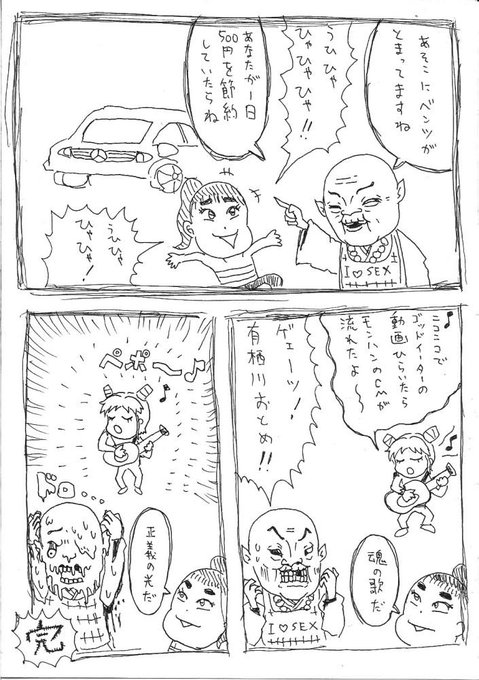 あそこにベンツが
とまってますね
うひひゃ
ひゃひゃひゃ!!
あなたが一日
500円を節約
していたらね
うひひゃ
ひゃひゃ!
I♡SEX
♪ニコニコで
ゴッドイーターの
動画ひらいたら
モンハンのCMが
流れたよ〜♪
ゲェーッ!
有栖川おとめ!!
魂の歌だ
I♡SEX
ペポ〜♪
ドロ...
正義の光だ
完